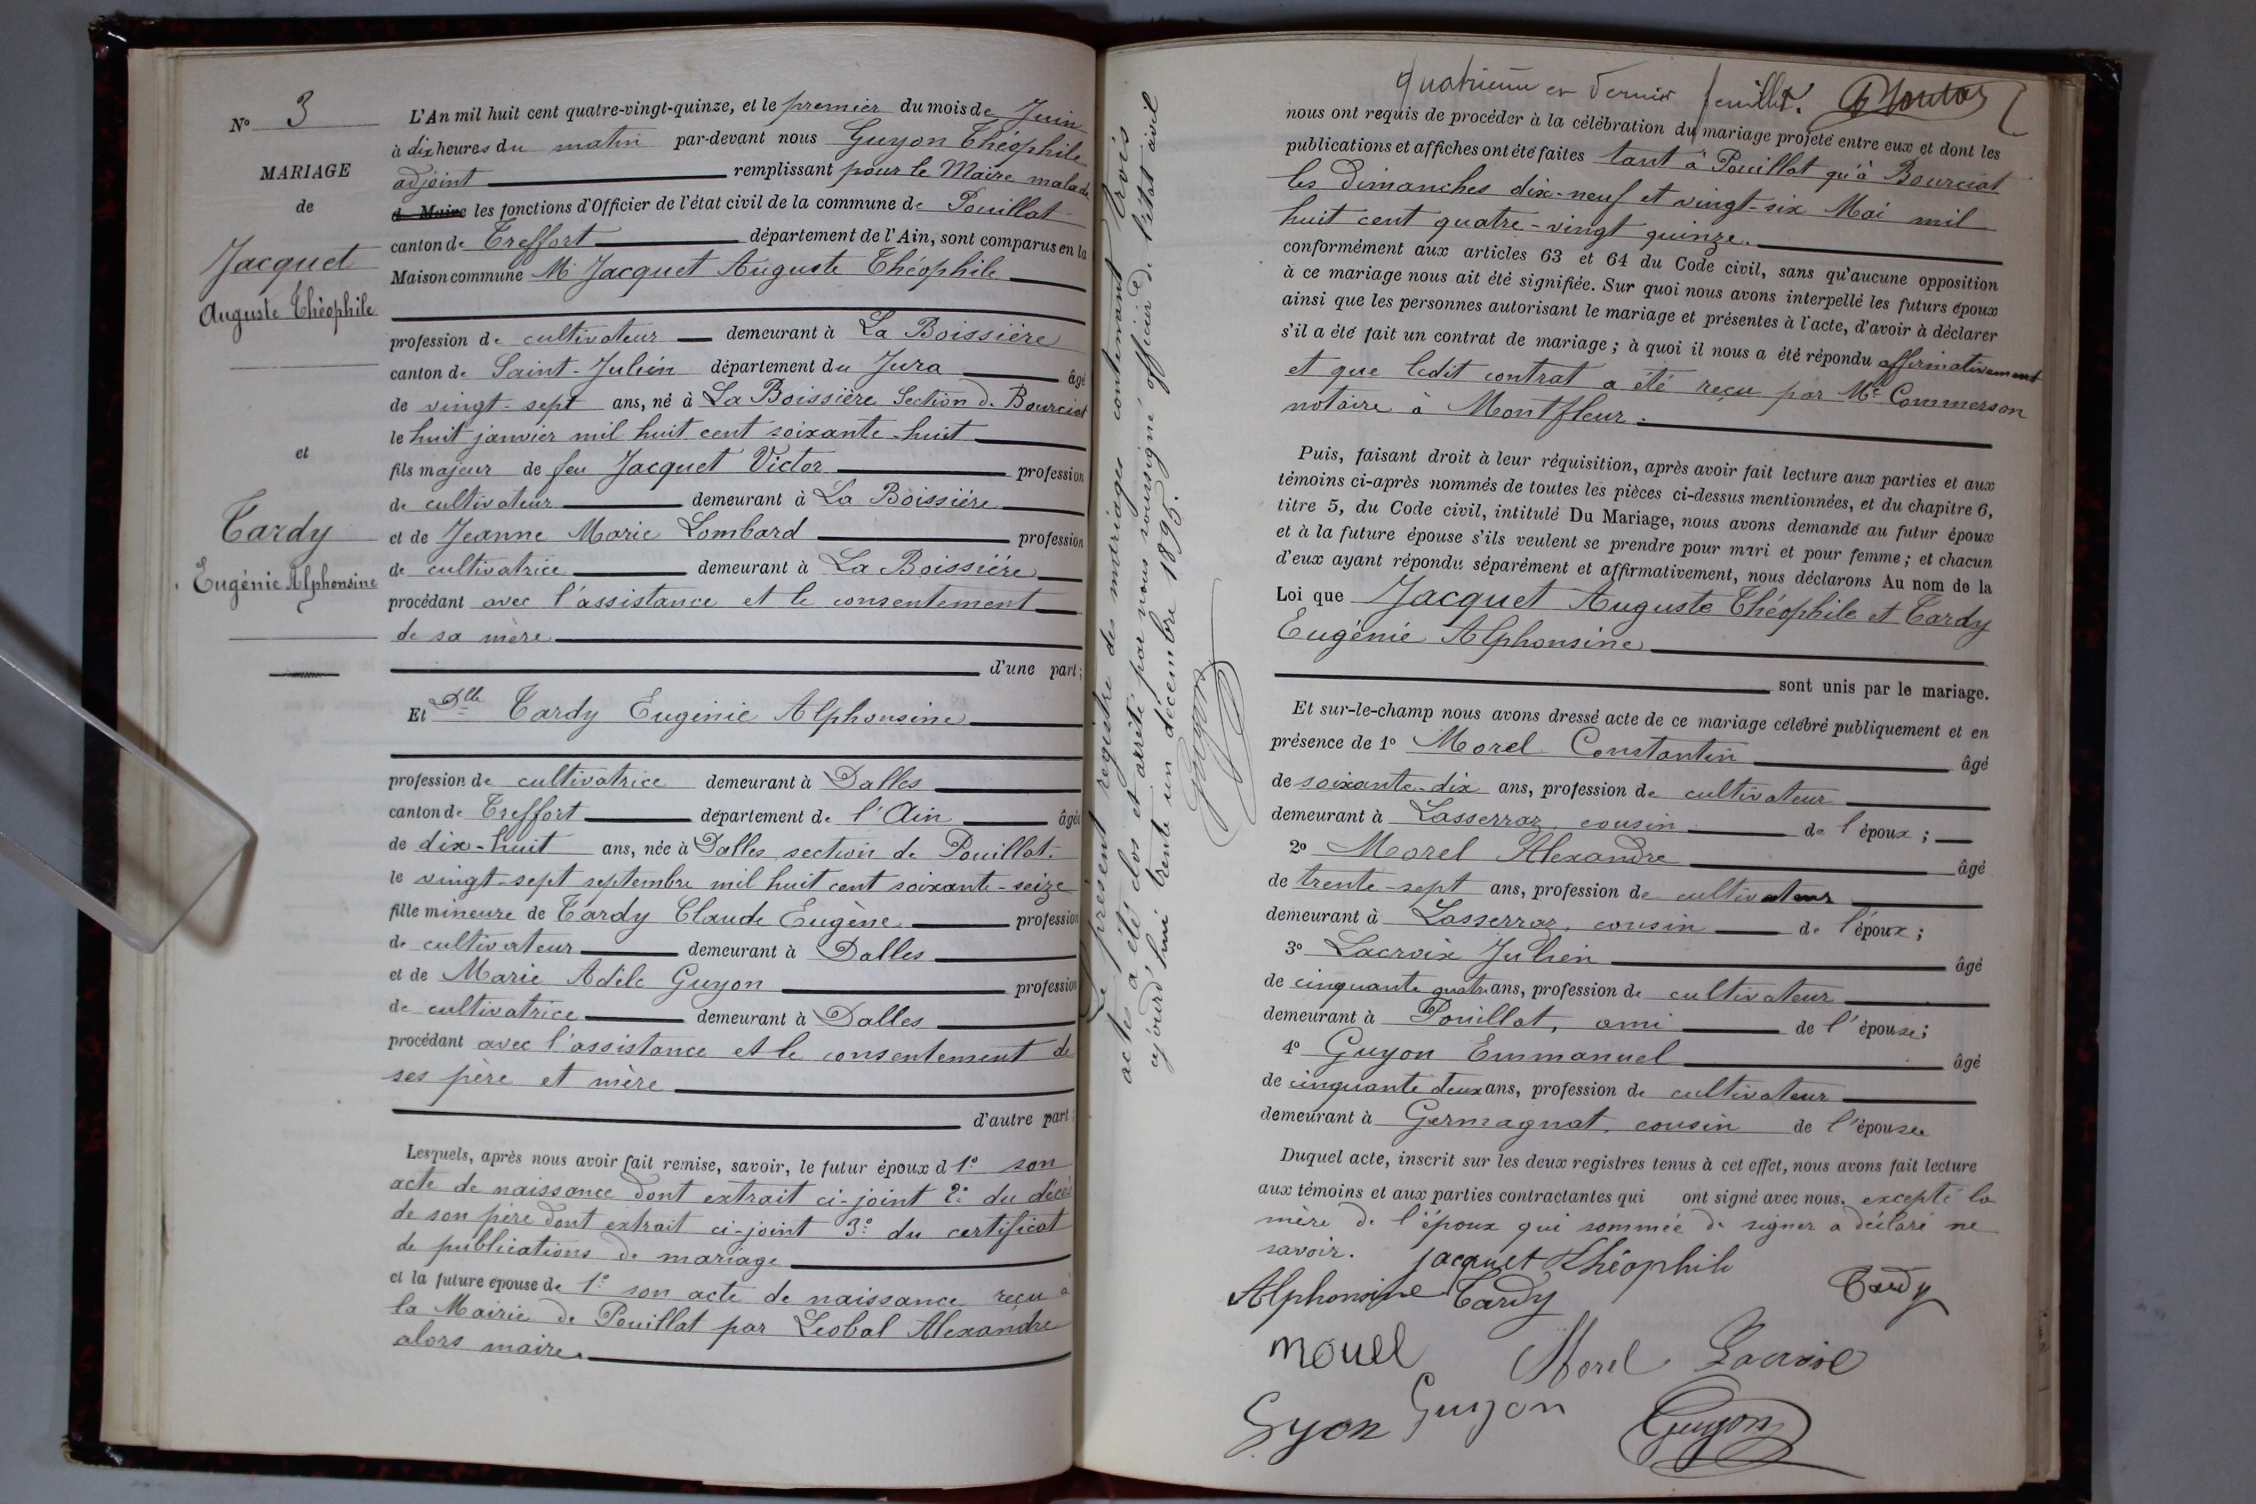 N° 3
MARIAGE
de
Jacquet
Auguste Théophile
et
Tardy
Eugénie Alphonsine
L'An mil huit cent quatre-vingt-quinze, et le premier du mois de Juin
à dix heures du matin par-devant nous Guyon Théophile
adjoint remplissant pour le Maire malade
de Maire les fonctions d'Officier de l'état civil de la commune de Pouillat
canton de Treffort département de l'Ain, sont comparus en la
Maison commune Mr Jacquet Auguste Théophile
profession de cultivateur demeurant à La Boissière
canton de Saint-Julien département du Jura âgé
de vingt-sept ans, né à La Boissière Section de Bourciat
le huit janvier mil huit cent soixante-huit
fils majeur de feu Jacquet Victor profession
de cultivateur demeurant à La Boissière
et de Jeanne Marie Lombard profession
de cultivatrice demeurant à La Boissière
procédant avec l'assistance et le consentement
de sa mère
d'une part;
Et Dlle Tardy Eugénie Alphonsine
profession de cultivatrice demeurant à Dalles
canton de Treffort département de l'Ain âgée
de dix-huit ans, née à Dalles section de Pouillat
le vingt-sept septembre mil huit cent soixante-seize
fille mineure de Tardy Claude Eugène profession
de cultivateur demeurant à Dalles
et de Marie Adèle Guyon profession
de cultivatrice demeurant à Dalles
procédant avec l'assistance et le consentement de
ses père et mère
d'autre part:
Lesquels, après nous avoir fait remise, savoir, le futur époux d 1° son
acte de naissance dont extrait ci-joint 2° du décès
de son père dont extrait ci-joint 3° du certificat
de publications de mariage
et la future épouse de 1° son acte de naissance reçu à
la Mairie de Pouillat par Léobal Alexandre
alors maire.
Le présent registre des mariages contenant trois
actes a été clos et arrêté par nous soussigné officier de l'état civil
cejourd'hui trente un décembre 1895.
Guyon
quatrième et dernier feuillet.
nous ont requis de procéder à la célébration du mariage projeté entre eux et dont les
publications et affiches ont été faites tant à Pouillat qu'à Bourciat
les dimanches dix-neuf et vingt-six Mai mil
huit cent quatre-vingt quinze.
conformément aux articles 63 et 64 du Code civil, sans qu'aucune opposition
à ce mariage nous ait été signifiée. Sur quoi nous avons interpellé les futurs époux
ainsi que les personnes autorisant le mariage et présentes à l'acte, d'avoir à déclarer
s'il a été fait un contrat de mariage; à quoi il nous a été répondu affirmativement
et que ledit contrat a été reçu par Me Commerson
notaire à Montfleur.
Puis, faisant droit à leur réquisition, après avoir fait lecture aux parties et aux
témoins ci-après nommés de toutes les pièces ci-dessus mentionnées, et du chapitre 6,
titre 5, du Code civil, intitulé Du Mariage, nous avons demandé au futur époux
et à la future épouse s'ils veulent se prendre pour mari et pour femme; et chacun
d'eux ayant répondu séparément et affirmativement, nous déclarons Au nom de la
Loi que Jacquet Auguste Théophile et Tardy
Eugénie Alphonsine
sont unis par le mariage.
Et sur-le-champ nous avons dressé acte de ce mariage célébré publiquement et en
présence de 1° Morel Constantin âgé
de soixante-dix ans, profession de cultivateur
demeurant à Lasserraz, cousin de l'époux;
2° Morel Alexandre âgé
de trente-sept ans, profession de cultivateur
demeurant à Lasserraz, cousin de l'époux;
3° Lacroix Julien âgé
de cinquante quatre ans, profession de cultivateur
demeurant à Pouillat, ami de l'épouse;
4° Guyon Emmanuel âgé
de cinquante deux ans, profession de cultivateur
demeurant à Germagnat, cousin de l'épouse
Duquel acte, inscrit sur les deux registres tenus à cet effet, nous avons fait lecture
aux témoins et aux parties contractantes qui ont signé avec nous, excepté la
mère de l'époux qui sommée de signer a déclaré ne
savoir. Jacquet théophile
Alphonsine Tardy Tardy
morel Morel Lacroix
Gyon Guyon Guyon